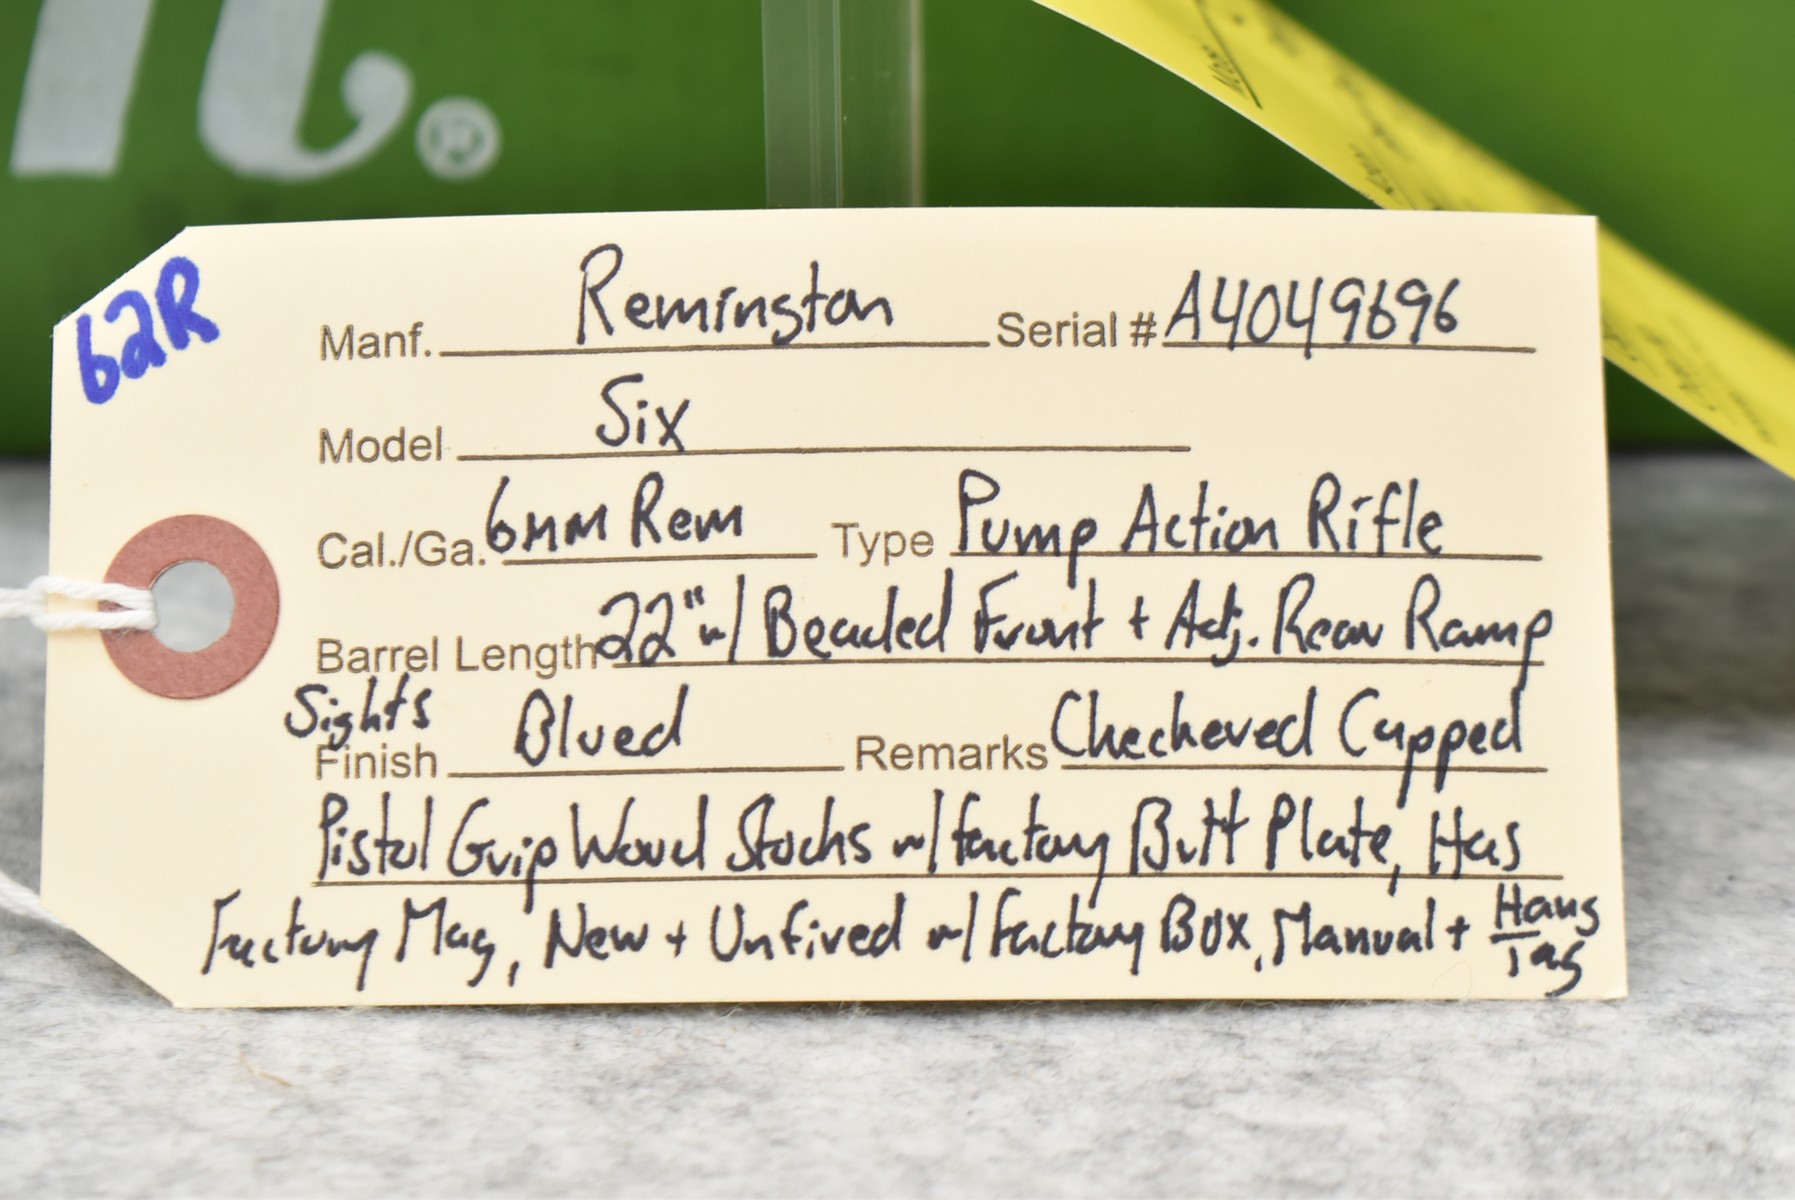 n.®
62R
Manf. Remington Serial # A4049696
Model Six
Cal./Ga. 6mm Rem Type Pump Action Rifle
Barrel Length 22" w/ Beaded Front + Adj. Rear Ramp
Sights
Finish Blued Remarks Checkered Capped
Pistol Grip Wood Stocks w/ factory Butt Plate, Has
Factory Mag, New + Unfired w/ factory Box, Manual + Hang
Tag